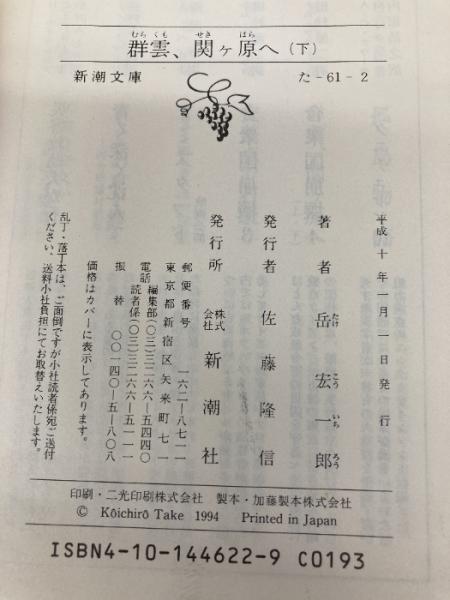 むらくも せき はら
群雲、関ヶ原へ(下)
新潮文庫
た-61-2
平成十年一月一日発行
著者 岳宏一郎
たけ こう いち ろう
発行者 佐藤隆信
発行所 株式会社 新潮社
郵便番号 一六二-八七一一
東京都新宿区矢来町七一
電話 編集部(〇三)三二六六-五四四〇
読者係(〇三)三二六六-五一一一
振替 〇〇一四〇-五-八〇八
価格はカバーに表示してあります。
乱丁・落丁本は、ご面倒ですが小社読者係宛ご送付
ください。送料小社負担にてお取替えいたします。
印刷・二光印刷株式会社 製本・加藤製本株式会社
© Kōichirō Take 1994 Printed in Japan
ISBN4-10-144622-9 C0193